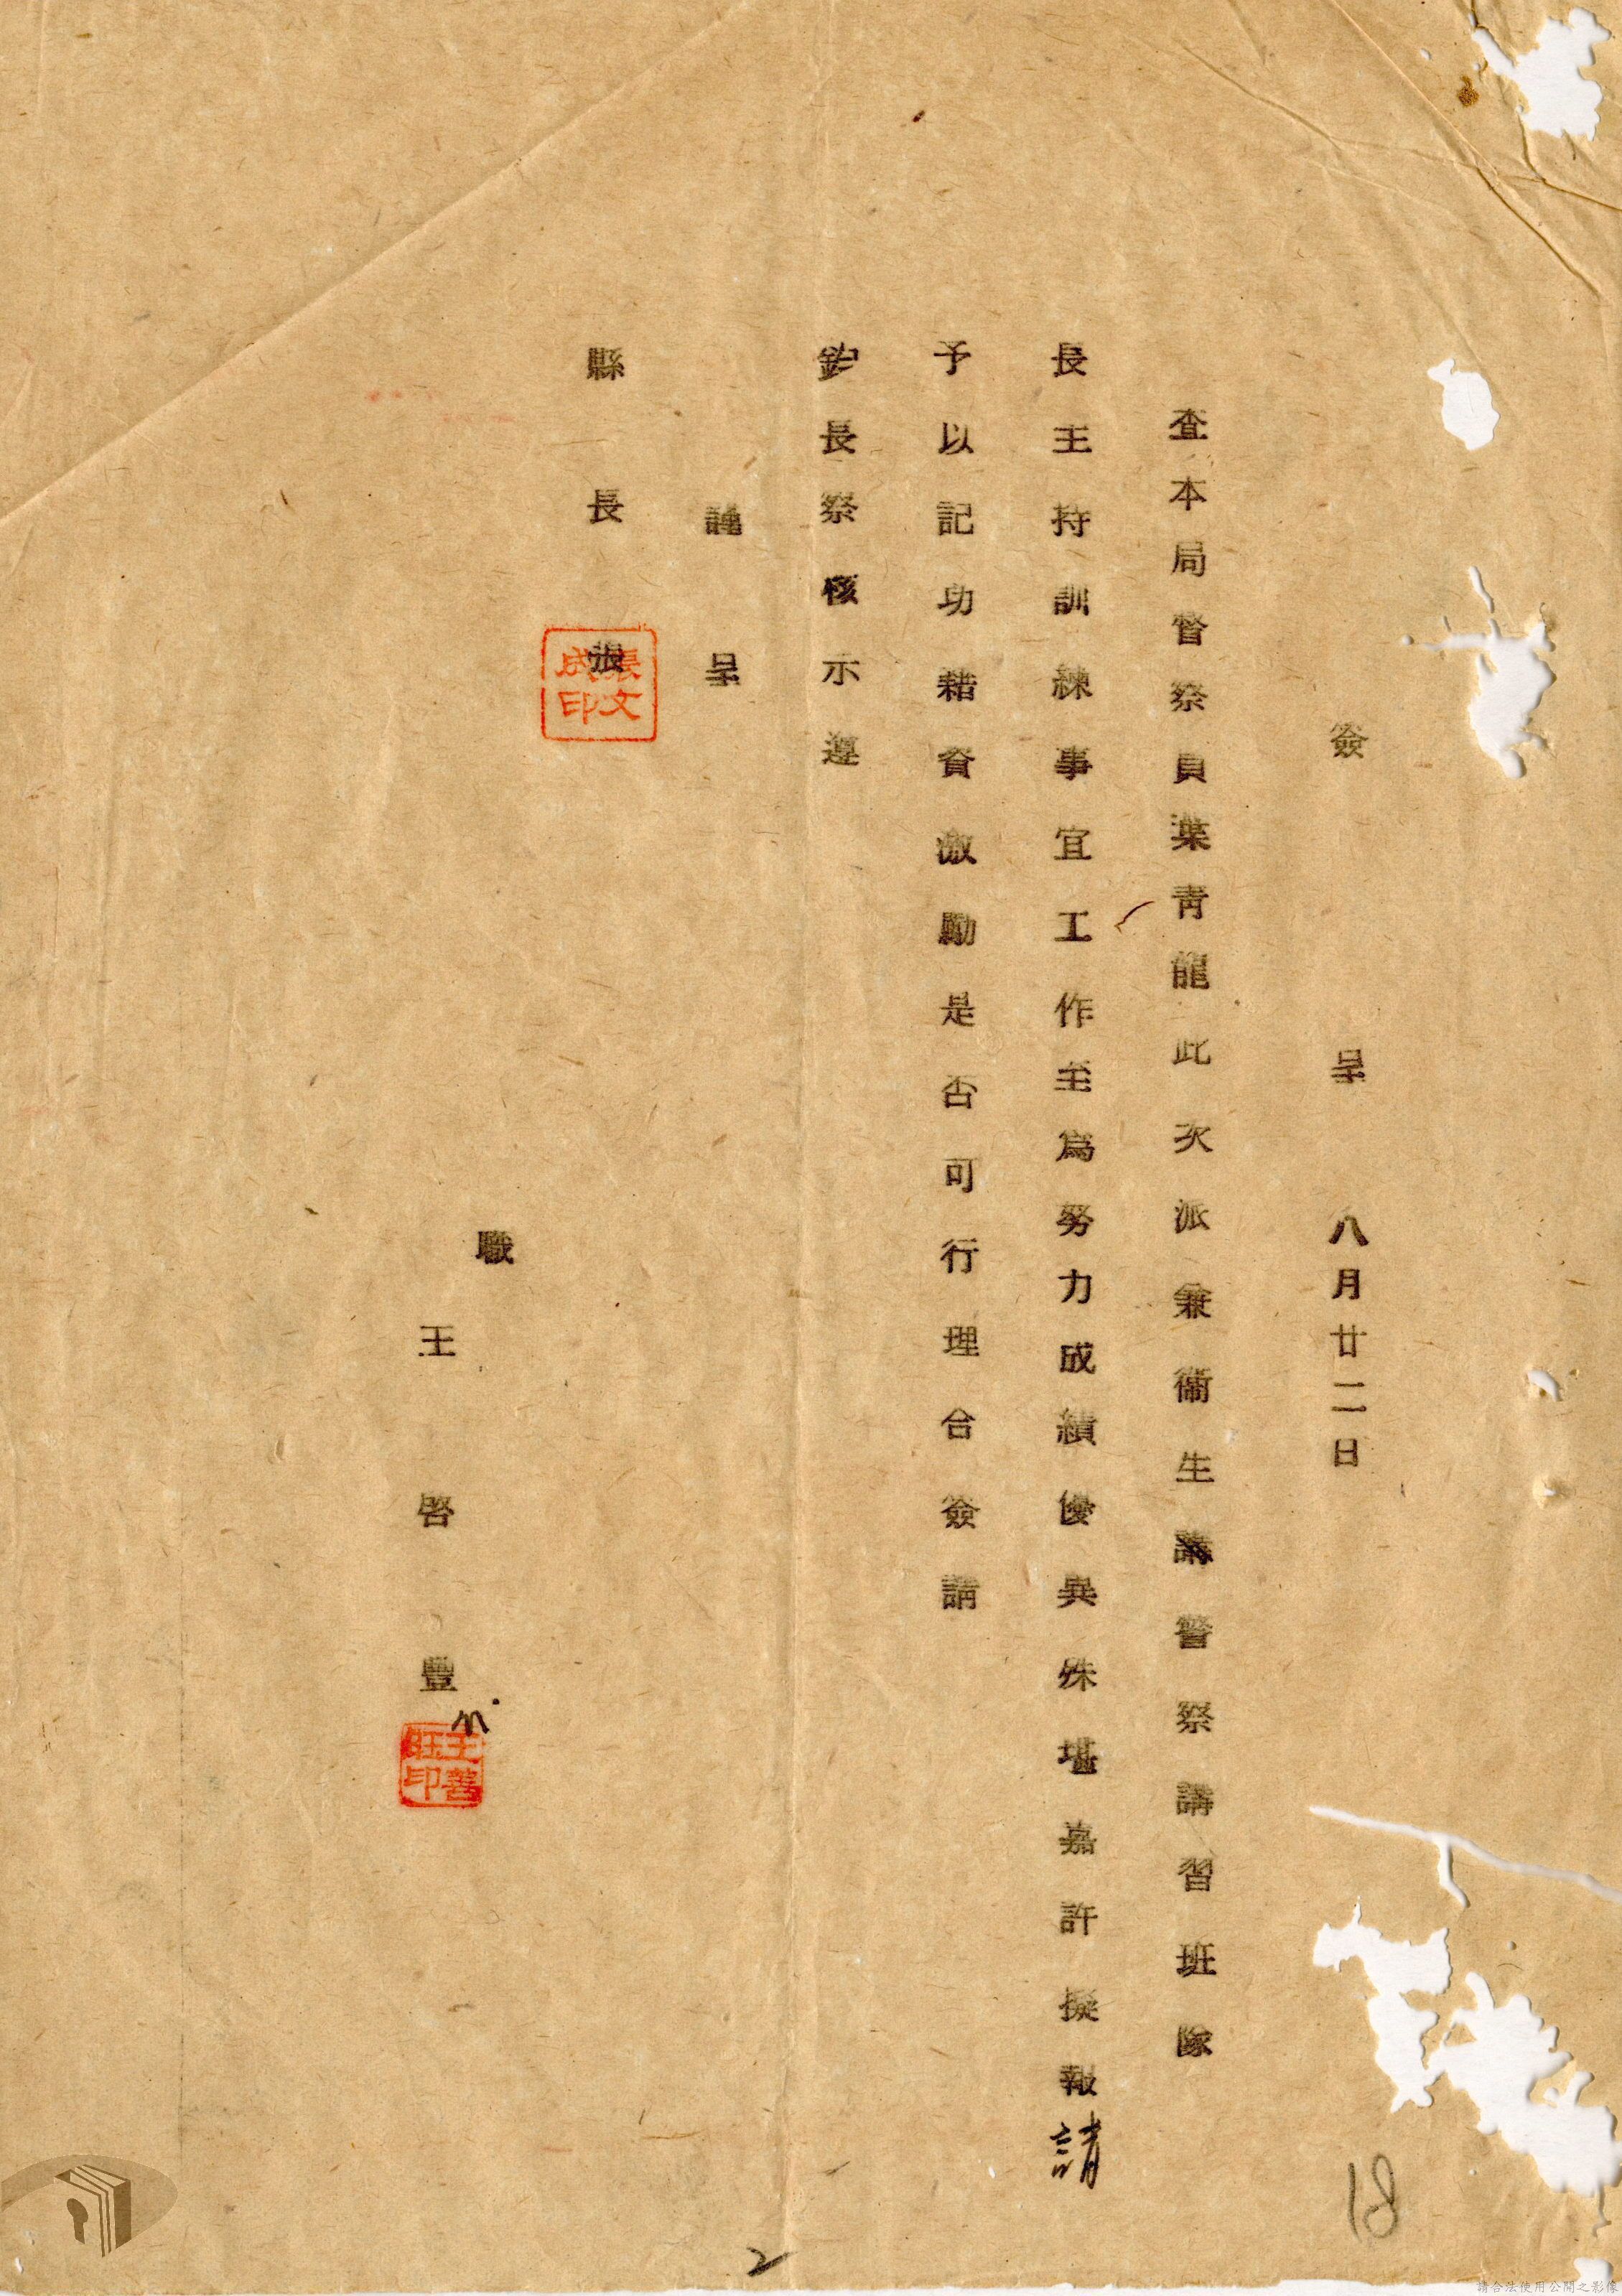 簽呈 八月廿二日
查本局督察員葉青龍此次派兼衞生警察講習班隊
長主持訓練事宜工作至為努力成績優異殊堪嘉許擬報請
予以記功藉資激勵是否可行理合簽請
鈞長察核示遵
謹呈
縣長張
張文成印
職
王啓豐
王善旺印
18
2
請合法使用公開之影像